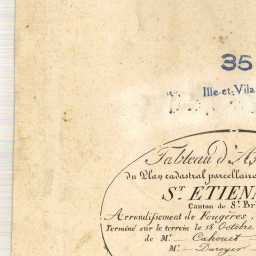 35
Ille-et-Vila
Tableau d'A
du Plan cadastral parcellaire
ST. ÉTIENN
Canton de St. Br
Arrondissement de Fougères,
Terminé sur le terrein le 18 Octobre
de Mr. Cahouet
Mr. Duroyer